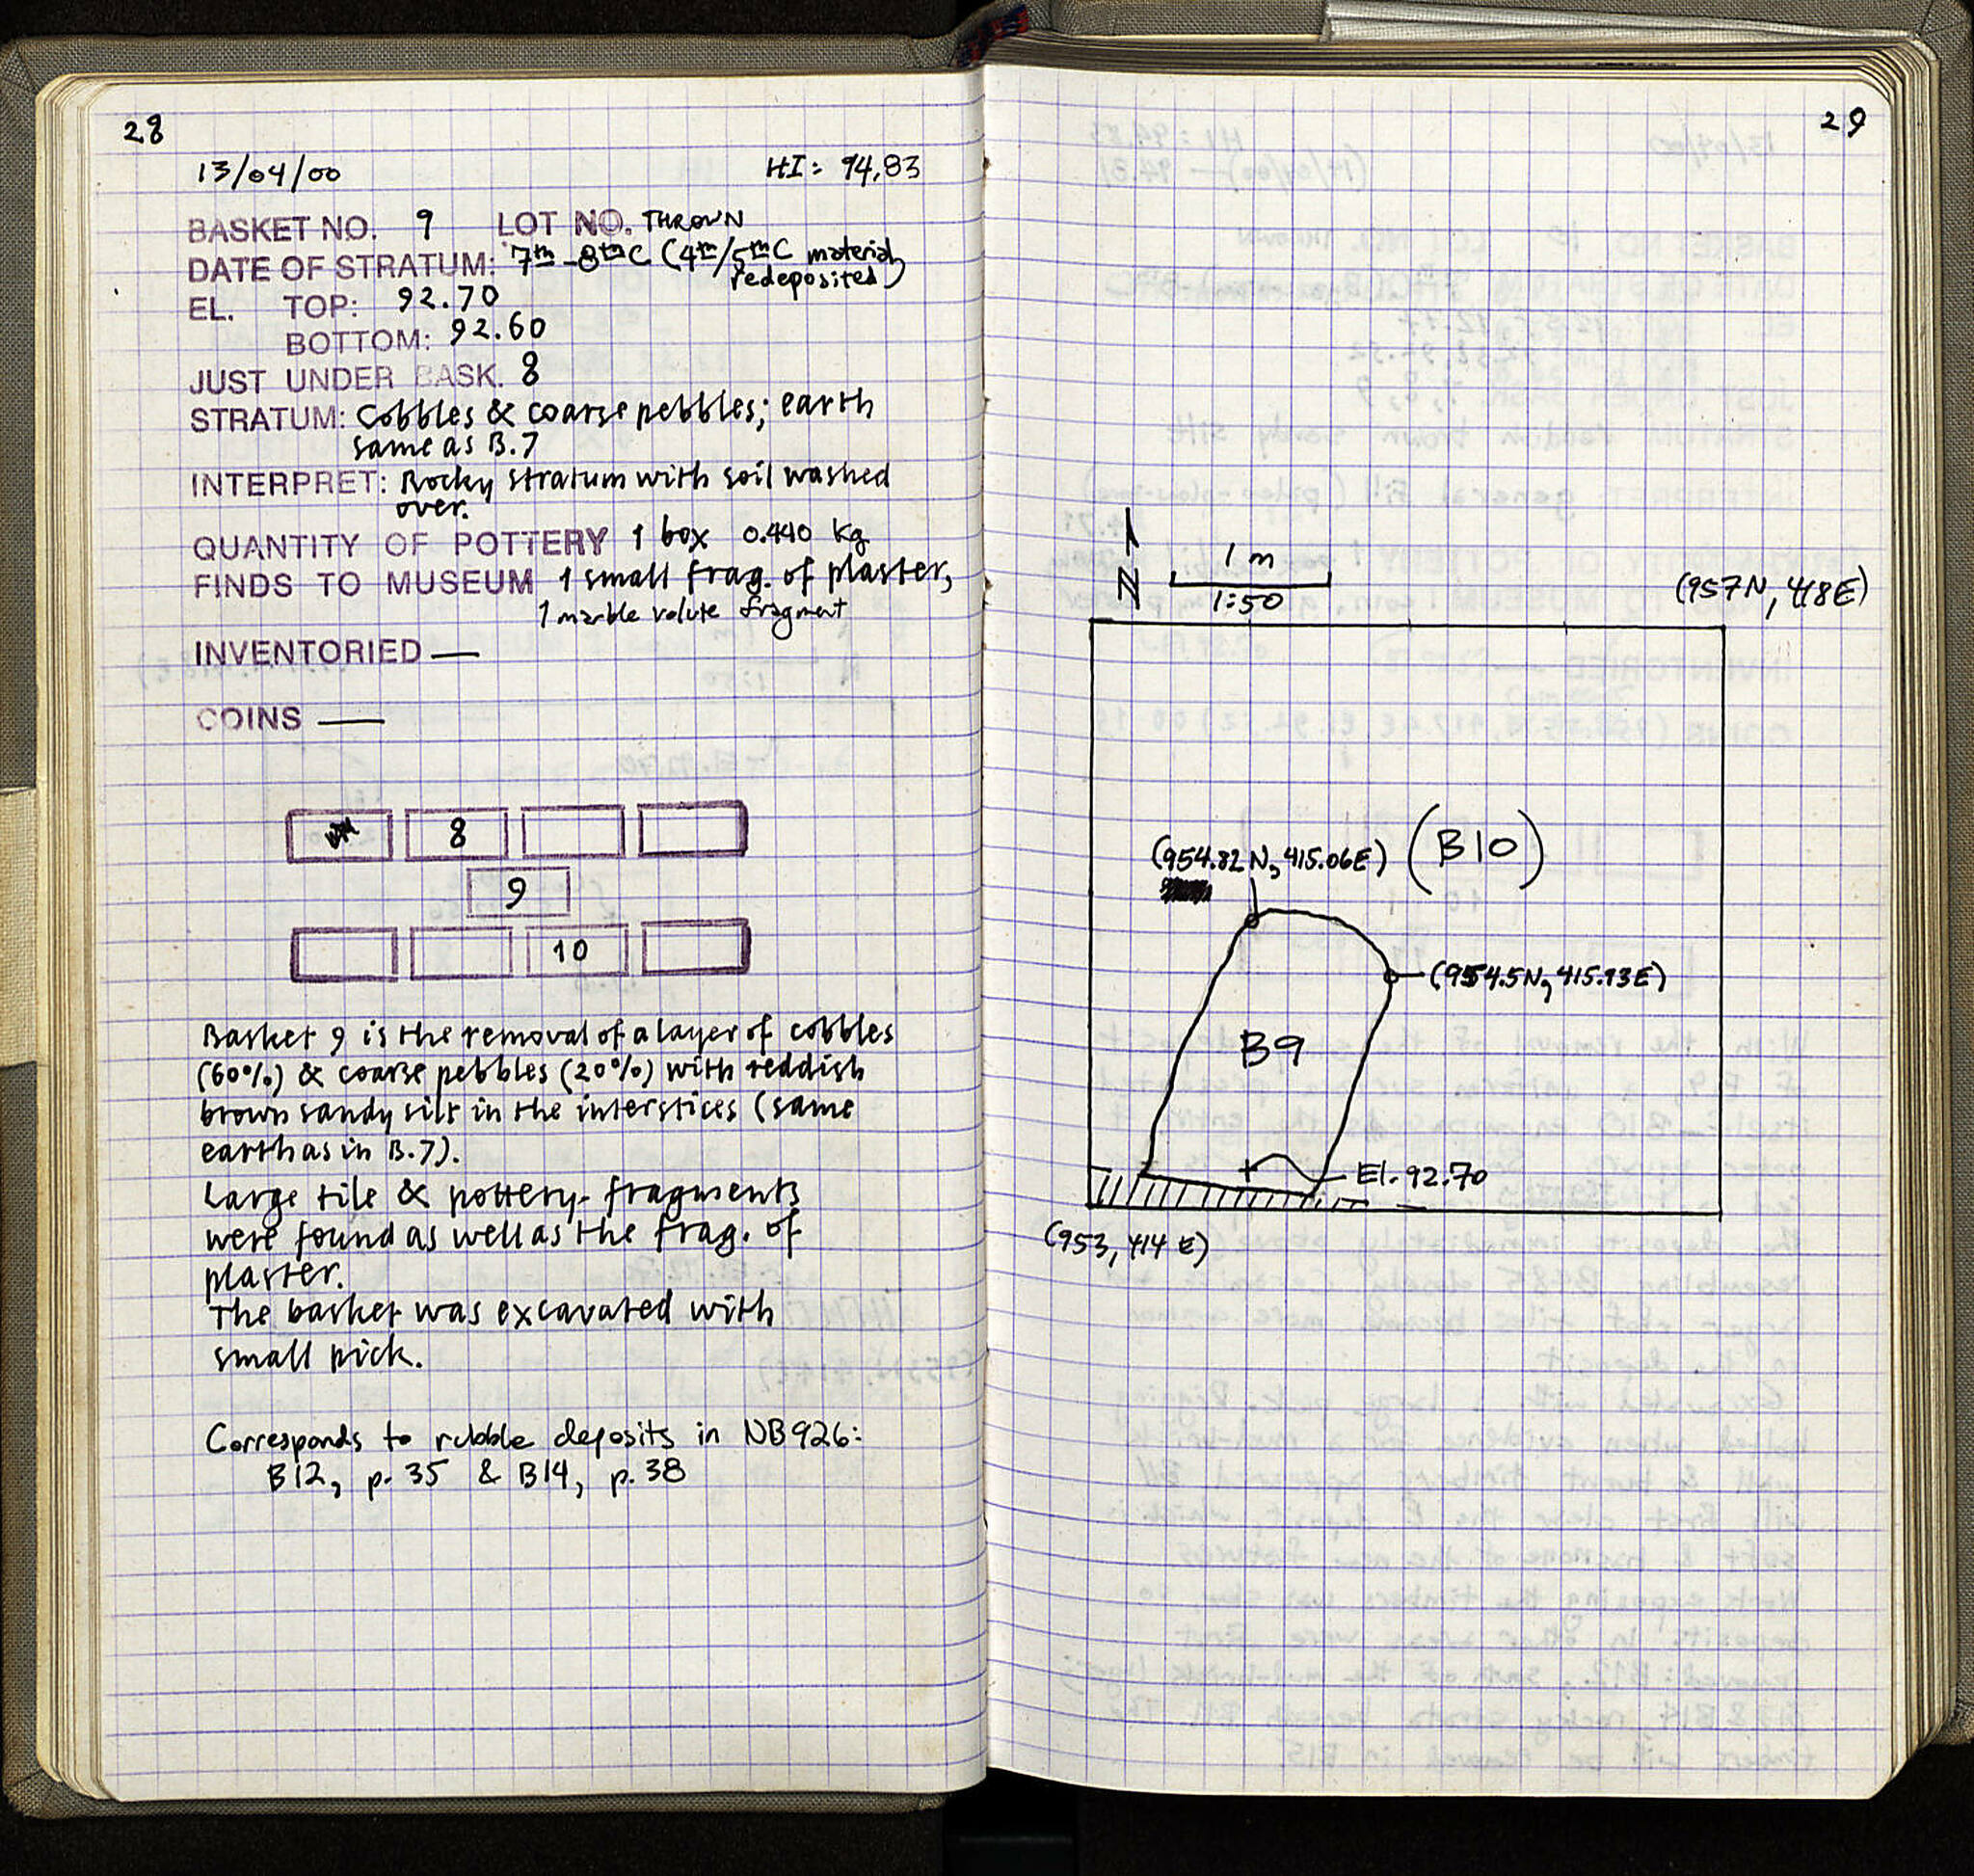 28
13/04/00 HI: 94.83
BASKET NO. 9 LOT NO. THROWN
DATE OF STRATUM: 7th-8th C (4th/5th C material redeposited)
EL. TOP: 92.70
BOTTOM: 92.60
JUST UNDER BASK. 8
STRATUM: Cobbles & coarse pebbles; earth
same as B.7
INTERPRET: Rocky stratum with soil washed
over.
QUANTITY OF POTTERY 1 box 0.440 kg
FINDS TO MUSEUM 1 small frag. of plaster,
1 marble volute fragment
INVENTORIED —
COINS —
8
9
10
Basket 9 is the removal of a layer of cobbles
(60%) & coarse pebbles (20%) with reddish
brown sandy silt in the interstices (same
earth as in B.7).
Large tile & pottery fragments
were found as well as the frag. of
plaster.
The basket was excavated with
small pick.
Corresponds to rubble deposits in NB926:
B12, p. 35 & B14, p. 38
29
N
1 m
1:50
(957N, 418E)
(954.82 N, 415.06E) (B10)
(954.5N, 415.93E)
B9
El. 92.70
(953, 414 E)